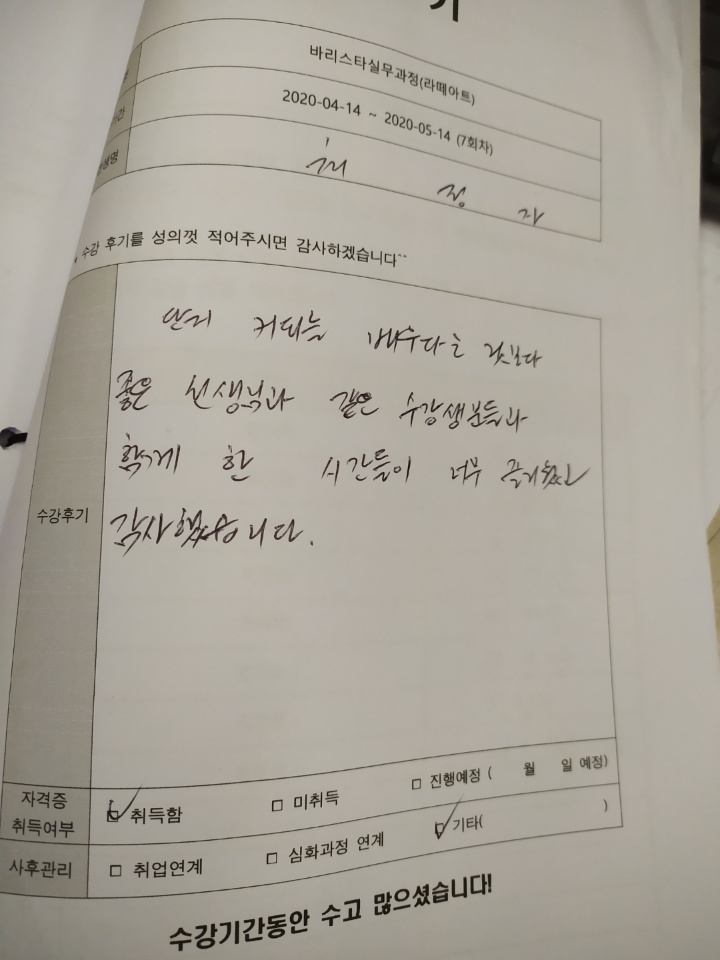 기
바리스타실무과정(라떼아트)
기간 2020-04-14 ~ 2020-05-14 (7회차)
생명 최 정 자
수강 후기를 성의껏 적어주시면 감사하겠습니다^^
수강후기
단지 커피를 배우다는 것보다
좋은 선생님과 같은 수강생분들과
함께 한 시간들이 너무 즐거웠고
감사했습니다.
자격증 취득여부 취득함 미취득 진행예정 ( 월 일 예정)
사후관리 취업연계 심화과정 연계 기타( )
수강기간동안 수고 많으셨습니다!